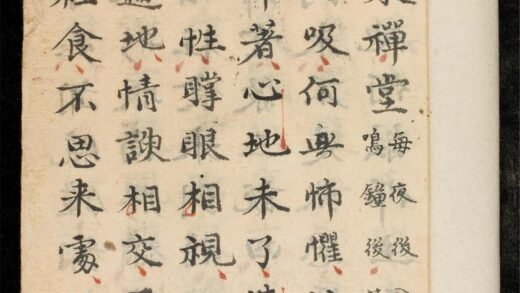 禪堂
每夜後
鳴鐘後
吸何怖懼
著心地未了
性眼相視
地情談相交
食不思来處